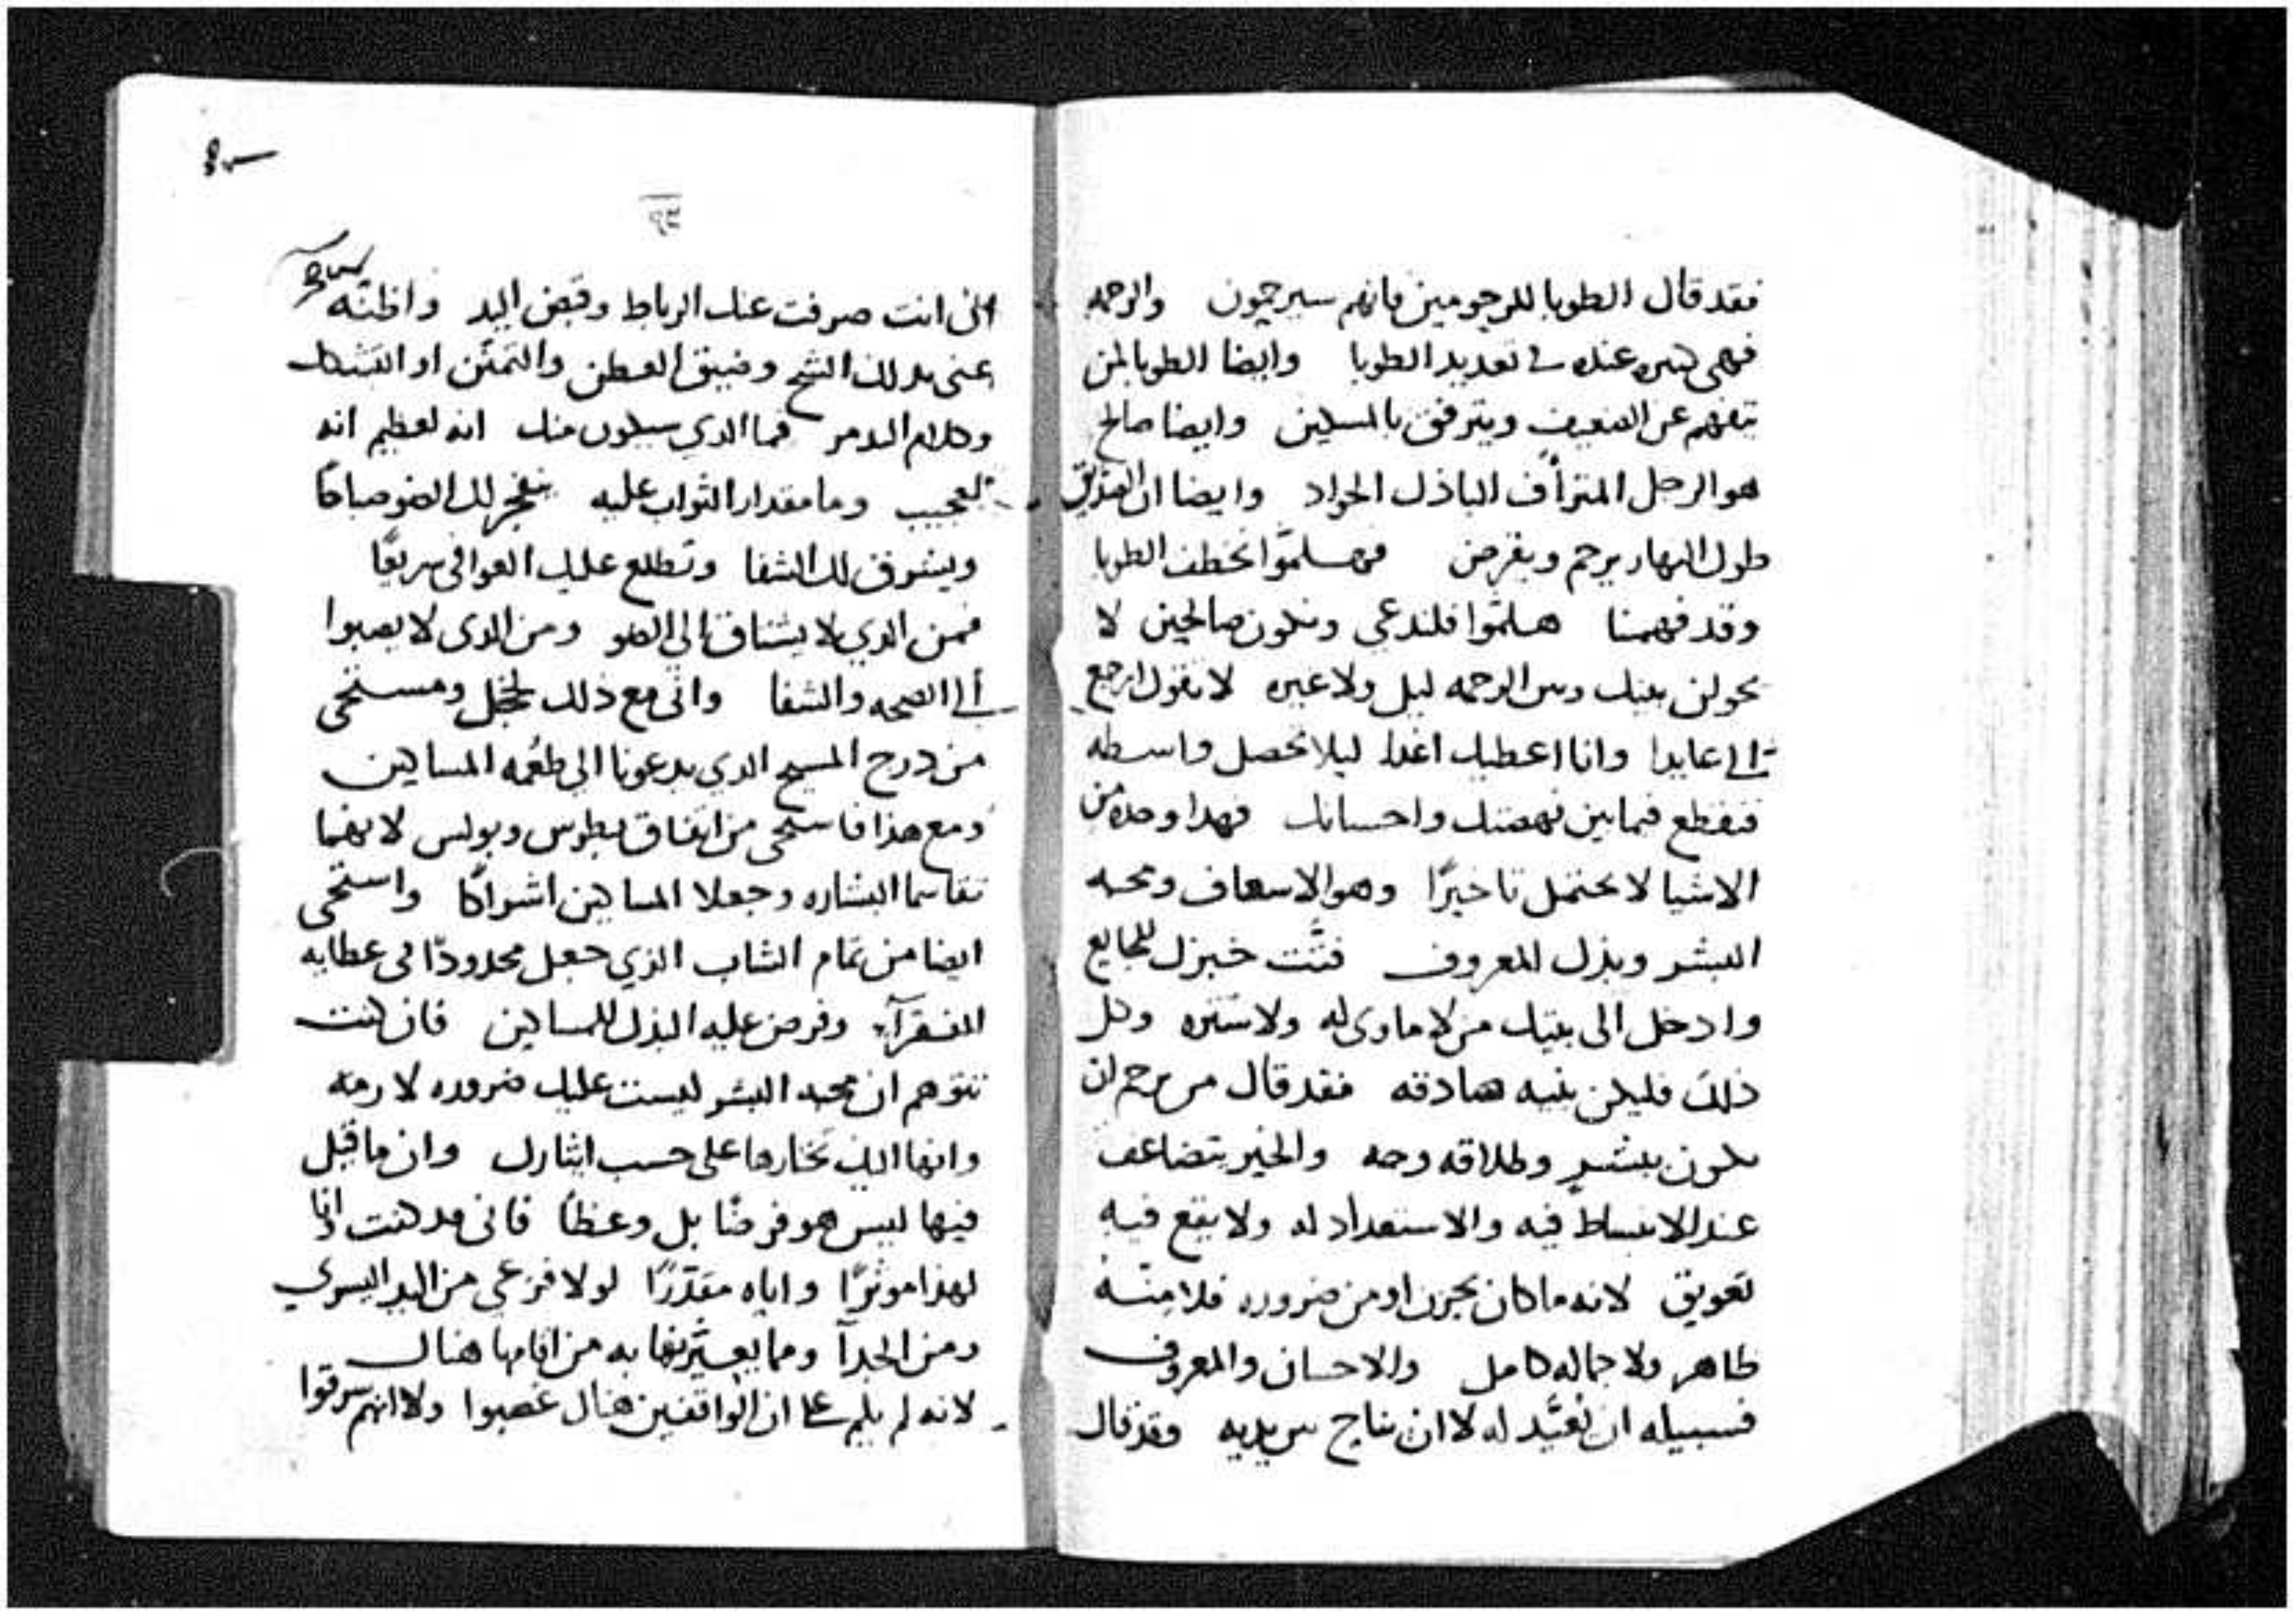 فقد قال الطوبا للمرحومين فانهم سيرحمون والرحمه
فهى ليس عنده فى تعديد الطوبا وايضا الطوبا لمن
يتفهم عن الضعيف ويترفق بالمسكين وايضا صالح
هو الرجل المترأف الباذل الجواد وايضا ان الصديق
طول النهار يرحم ويقرض فهلموا نخطف الطوبا
وقد فهمنا هلموا فلندعى ونكون صالحين لا
يحولن بينك وبين الرحمه ليل ولا غيره لا تقول ارجع
الى عايدا وانا اعطيك اغدا ليلا تحصل واسطه
فتقطع فيما بين نهضتك واحسانك فهدا وحده من
الاشيا لا يحتمل تاخيرًا وهو الاسعاف ومحبه
البشر وبذل المعروف فتّت خبزك للجايع
وادخل الى بيتك من لا ماوى له ولا ستره وكل
ذلك فليكن بنيه صادقه فقد قال من يرحم ان
يكون ببشر وطلاقه وجه والخير يتضاعف
عند الانبساط فيه والاستعداد له ولا يقع فيه
تعويق لانه ما كان بحزن او من ضروره فلا منّه
ظاهر ولا جماله كامل والاحسان والمعروف
فسبيله ان نعيّد له لا ان نناح بين يديه وقد قال
٩٣
انى انت صرفت عنك الرباط وقبض اليد واظنّه
عنى بدلك الشح وضيق العطن والتمنّن او التشكك
وكلام الدمر فما الدي سيكون منك انه لعظيم انه
لعجيب وما مقدار الثواب عليه ينفجر لك الضو صباحًا
ويشرق لك الشفا وتطلع عليك العوافى سريعًا
فمن الدي لا يشتاق الى الضو ومن الدى لا يصبوا
الى الصحه والشفا وانى مع ذلك لخجل ومستحى
من درج المسيح الدي يدعونا الى طعمه المساكين
ومع هذا فاستحى من اتفاق بطرس وبولس لانهما
تقاسما البشاره وجعلا المساكين اشراكًا واستحى
ايضا من تمام الشاب الذي جعل محدودًا فى عطايه
الفقرآء وفرض عليه البذل للمساكين فان كنت
تتوهم ان محبه البشر ليست عليك ضروره لازمه
وانها اليك تختارها على حسب ايثارك وان ما قيل
فيها ليس هو فرضًا بل وعظًا فانى قد كنت انا
لهذا موثرًا واياه مقدّرًا لولا فزعى من اليد اليسري
ومن الجدآ ومما يعيّرنها به من اقامها هناك
لانه لم يلم على ان الواقفين هناك غصبوا ولا انهم سرقوا